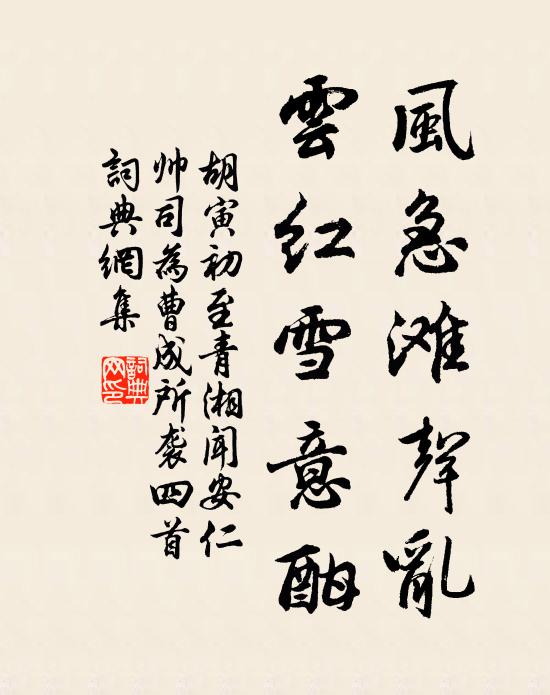 風急滩聲亂
雲红雪意酣
胡寅初至青湘闻安仁
帅司為曹成所袭四首
詞典網集
詞典
网印